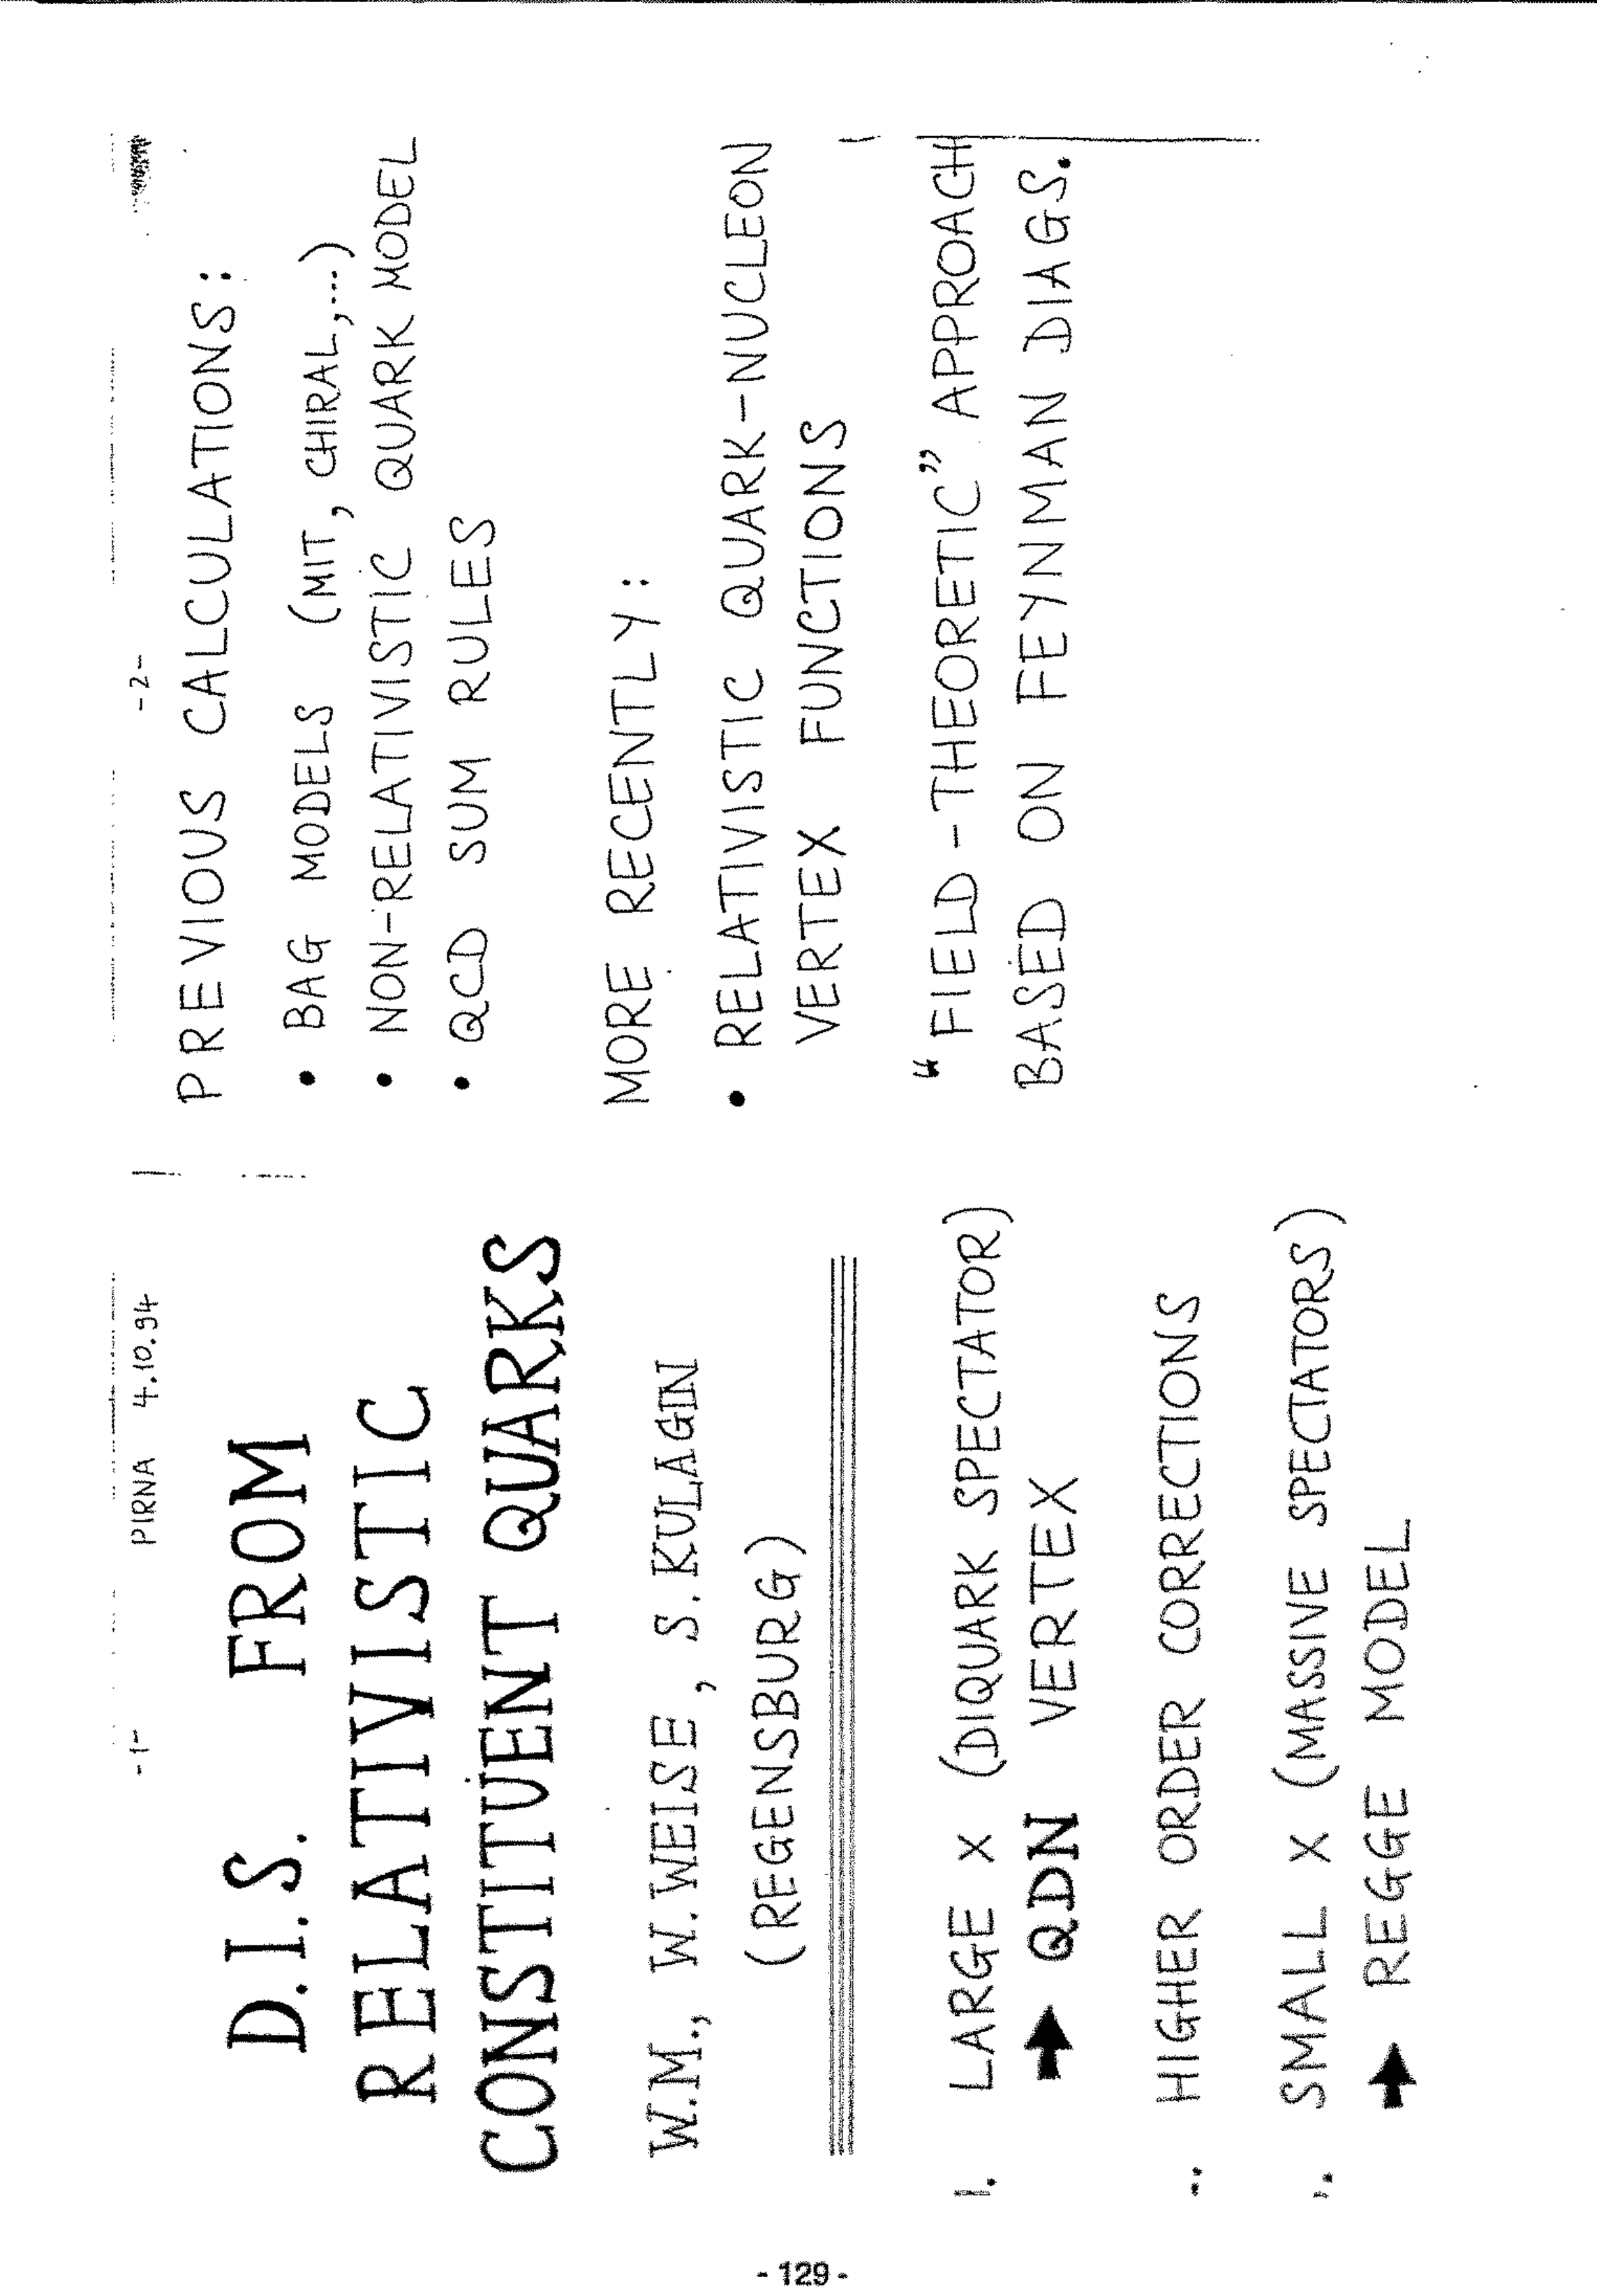 -1- PIRNA 4.10.94
D.I.S. FROM
RELATIVISTIC
CONSTITUENT QUARKS
W.M., W.WEISE, S.KULAGIN
(REGENSBURG)
1. LARGE X (DIQUARK SPECTATOR)
➡ QDN VERTEX
HIGHER ORDER CORRECTIONS
SMALL X (MASSIVE SPECTATORS)
➡ REGGE MODEL
-2-
PREVIOUS CALCULATIONS:
• BAG MODELS (MIT, CHIRAL,...)
• NON-RELATIVISTIC QUARK MODEL
• QCD SUM RULES
MORE RECENTLY:
• RELATIVISTIC QUARK-NUCLEON
VERTEX FUNCTIONS
"FIELD-THEORETIC" APPROACH
BASED ON FEYNMAN DIAGS.
- 129 -